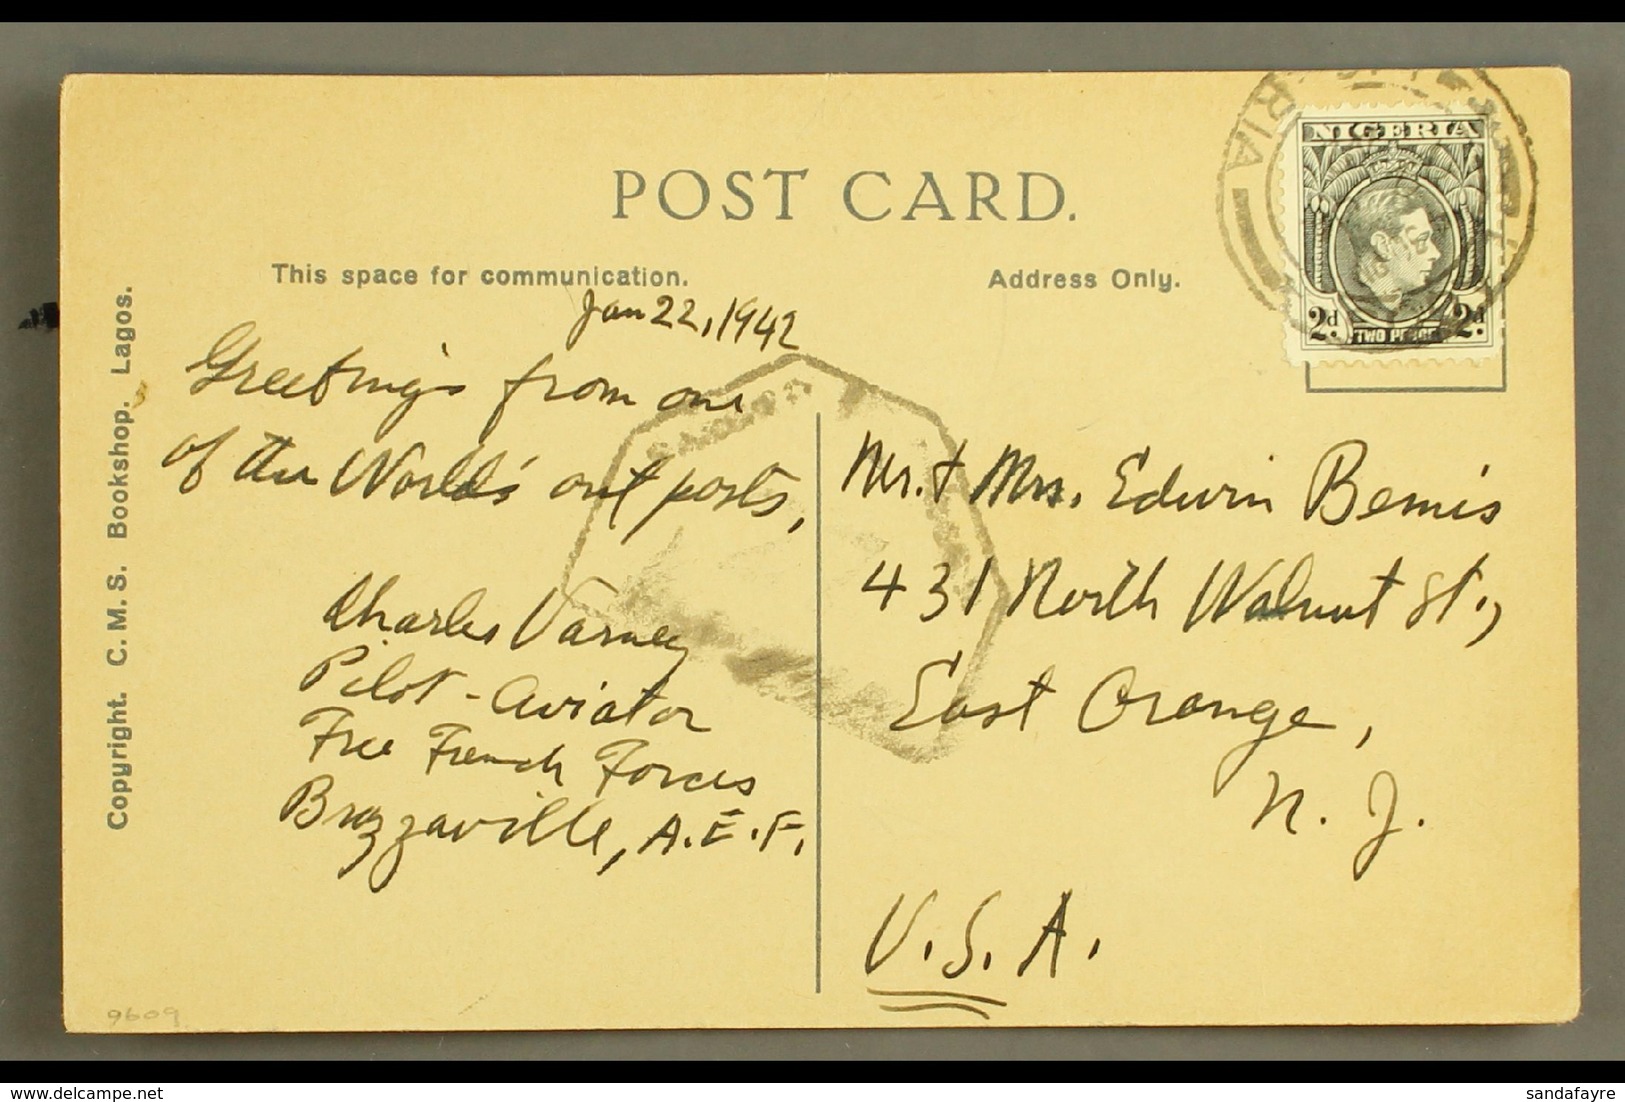 POST CARD.
This space for communication.
Address Only.
Copyright. C. M. S. Bookshop. Lagos.
Jan 22, 1942
Greetings from one
of the World's out posts,
Charles Varney
Pilot - Aviator
Free French Forces
Brazzaville, A.E.F.
NIGERIA
2d
TWO PENCE
2d
RIA
Mr. + Mrs. Edwin Bemis
431 North Walnut St.,
East Orange,
N. J.
U.S.A.
9609
www.delcampe.net
sandafayre